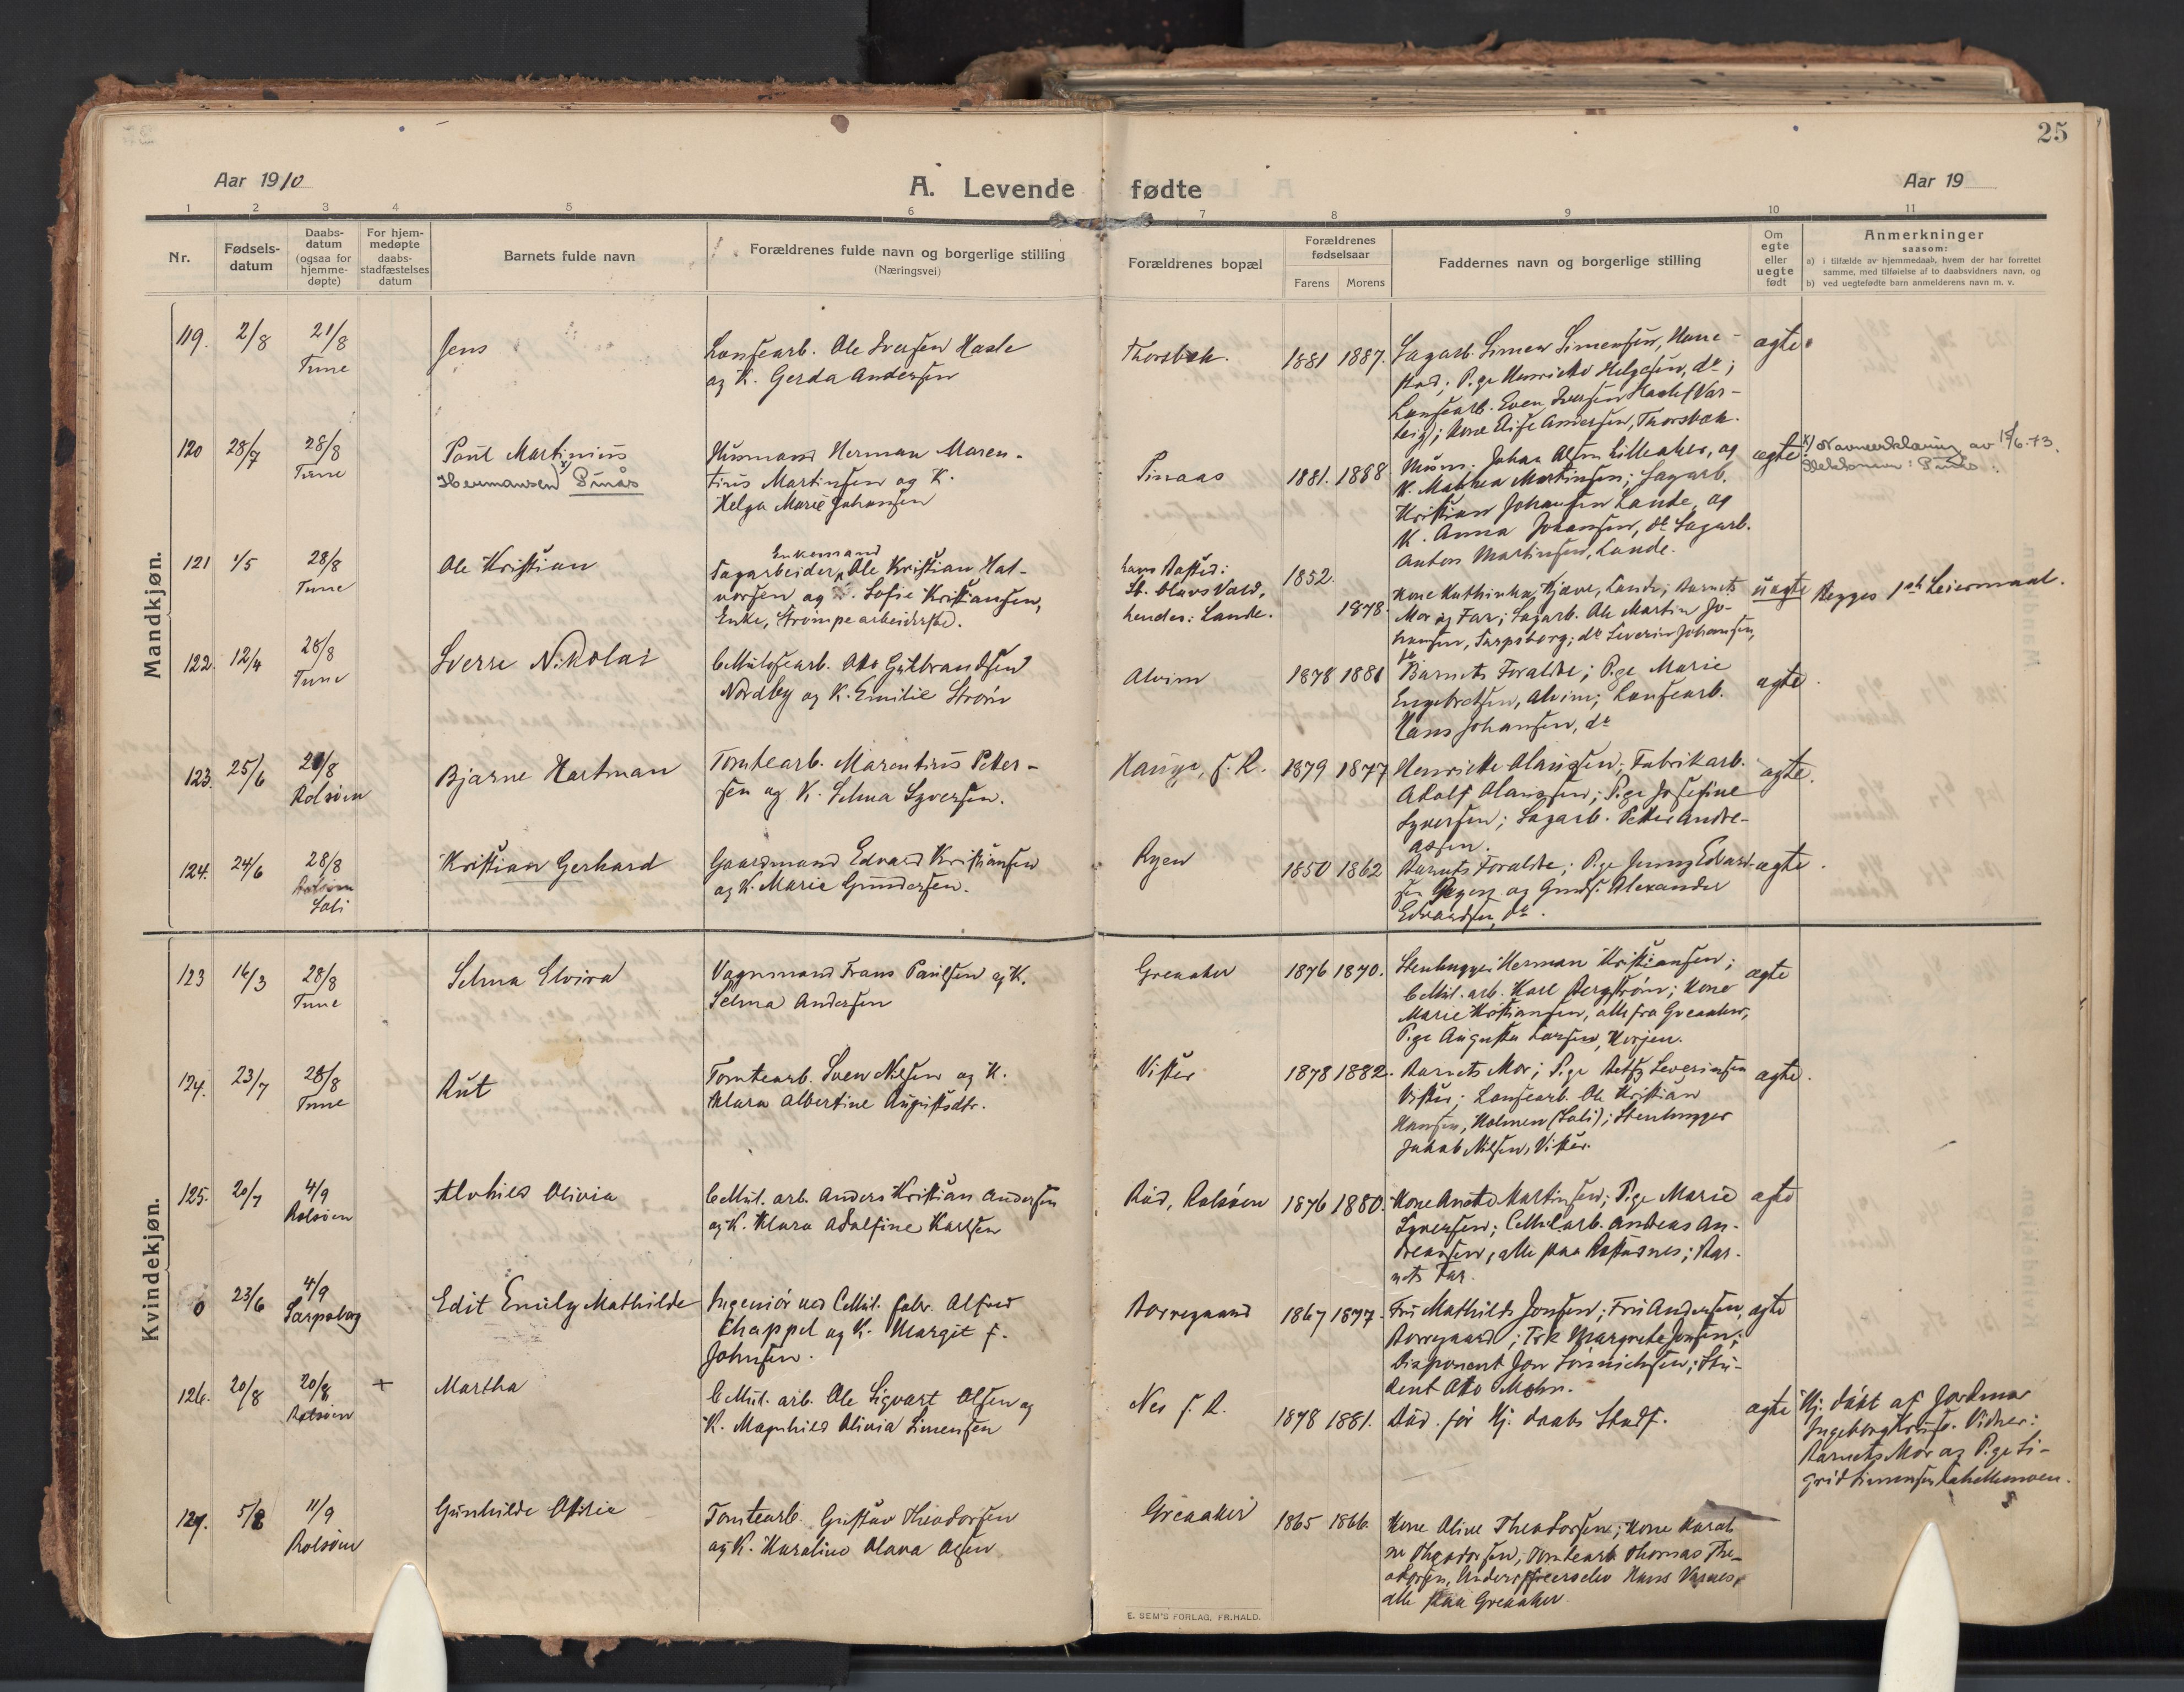 25
Aar 1910
A. Levende fødte
Aar 19
1 2 3 4 5 6 7 8 9 10 11
Nr.
Fødsels-
datum
Daabs-
datum
(ogsaa for
hjemme-
døpte)
For hjem-
medøpte
daabs-
stadfæstelses
datum
Barnets fulde navn
Forældrenes fulde navn og borgerlige stilling
(Næringsvei)
Forældrenes bopæl
Forældrenes
fødselsaar
Farens
Morens
Faddernes navn og borgerlige stilling
Om
egte
eller
uegte
født
Anmerkninger
saasom:
a) i tilfælde av hjemmedaab, hvem der har forrettet
samme, med tilføielse af to daabsvidners navn, og
b) ved uegtefødte barn anmelderens navn m. v.
Mandkjøn.
119. 2/8 21/8
Tune
Jens
Lansearb. Ole Iversen Hasle
og K. Gerda Andersen
Thorsbæk.
1881 1887.
Sagarb. Simen Simensen, Hane-
stad; Pige Henriette Helgesen, do;
Lansearb. Even Iversen Hasle (Var-
teig); Kone Elise Andersen, Thorsbæk.
ægte
120 28/7 28/8
Tune
Paul Martinius
Hermansen x) Pinås
Husmand Herman Maren-
tius Martinsen og K.
Helga Marie Johansen
Pinaas
1881. 1888
Johan Olsen Lilleaker, og
K. Mathea Martinsen; Sagarb.
Kristian Johansen Lande, og
K. Anna Johansen, do Sagarb.
Anton Martinsen, Lande.
ægte
x) Navneerklæring av 15/6.73.
Slektsnavn: Pinås.
121 1/5 28/8
Tune
Ole Kristian
Enkemand
Sagarbeider, Ole Kristian Hal-
vorsen og Sofie Kristiansen,
Enke, Strømpearbeiderske.
hans Bosted:
St. Olavs Vold,
hendes: Lande.
1852.
1878.
Kone Kathinka Kjøve, Lande; Barnets
Mor og Far; Sagarb. Ole Martin Jo-
hansen, Sarpsborg; do Severin Johansen,
do
uægte
Begges 1ste Leiermaal.
122. 12/4 28/8
Tune
Sverre Nikolai
Cellulosearb. Otto Gulbrandsen
Nordby og K. Emilie Strøm
Alvim
1878 1881
Barnets Forældre; Pige Marie
Engebretsen, Alvim; Lansearb.
Hans Johansen, do
ægte.
123. 25/6 28/8
Rolsøen
Bjarne Hartman
Tomtearb. Marentius Petter-
sen og K. Selma Syversen.
Hauge, f. R.
1879 1877
Henriette Olaussen; Fabrikarb.
Adolf Olaussen; Pige Josefine
Syversen; Sagarb. Petter Andre-
assen.
ægte.
124. 24/6 28/8
Rolsøen
Soli
Kristian Gerhard
Gaardmand Edvard Kristiansen
og K. Marie Gundersen.
Ryen
1850 1862
Barnets Forældre; Pige Jenny Edvard-
sen Ryen og Gmdf. Alexander
Edvardsen, do.
ægte.
Kvindekjøn.
123 16/3 28/8
Tune
Selma Elvira
Vognmand Frans Paulsen og K.
Selma Andersen
Greaaker
1876 1870.
Stenhugger Herman Kristiansen;
Cellul. arb. Karl Bergstrøm; Kone
Marie Kristiansen, alle fra Greaaker,
Pige Augusta Larsen, Korjen.
ægte
124. 23/7 28/8
Tune
Rut
Tomtearb. Sven Nilsen og K.
Klara Albertine Augustsdtr.
Vister
1878 1882.
Barnets Mor; Pige Betsy Severinsen
Vister; Lansearb. Ole Kristian
Hansen, Holmen (Soli); Stenhugger
Jakob Nilsen, Vister.
ægte.
125. 20/7 4/9
Rolsøen
Alvhild Olivia
Cellul. arb. Anders Kristian Andersen
og K. Klara Adolfine Karlsen
Råd, Rolsøen
1876 1880.
Kone Anette Martinsen; Pige Marie
Syversen; Cellul. arb. Andreas An-
dreassen, alle paa; Bar-
nets Far.
ægte
0 23/6 4/9
Sarpsborg
Edit Emily Mathilde
Ingeniør ved Cellul. fabr. Alfred
Chappel og K. Margit f.
Johnsen.
Borregaard
1867 1877.
Fru Mathilde Jonsen; Fru Andersen,
Borregaard; Frk Margrete Jonsen;
Disponent Jon Sønnichsen; Stu-
dent Otto Mohn.
ægte
126. 20/8 20/8
Rolsøen
+
Martha
Cellul. arb. Ole Sigvart Olsen og
K. Magnhild Olivia Simensen
Nes f. R.
1878 1881.
Død før Hj. daabs Stadf.
ægte
Hj. døbt af Jordmor
Ingeborg. Vidner:
Barnets Mor og Pige Si-
grid Simensen.
127. 5/8 11/9
Rolsøen
Gunhilde Otilie
Tomtearb. Gustav Theodorsen
og K. Karoline Olava Olsen
Greaaker
1865 1866.
Kone Oline Theodorsen; Kone Karoli-
ne Theodorsen, Tomtearb. Thomas The-
odorsen, Hans,
alle paa Greaaker.
E. SEM'S FORLAG, FR.HALD.